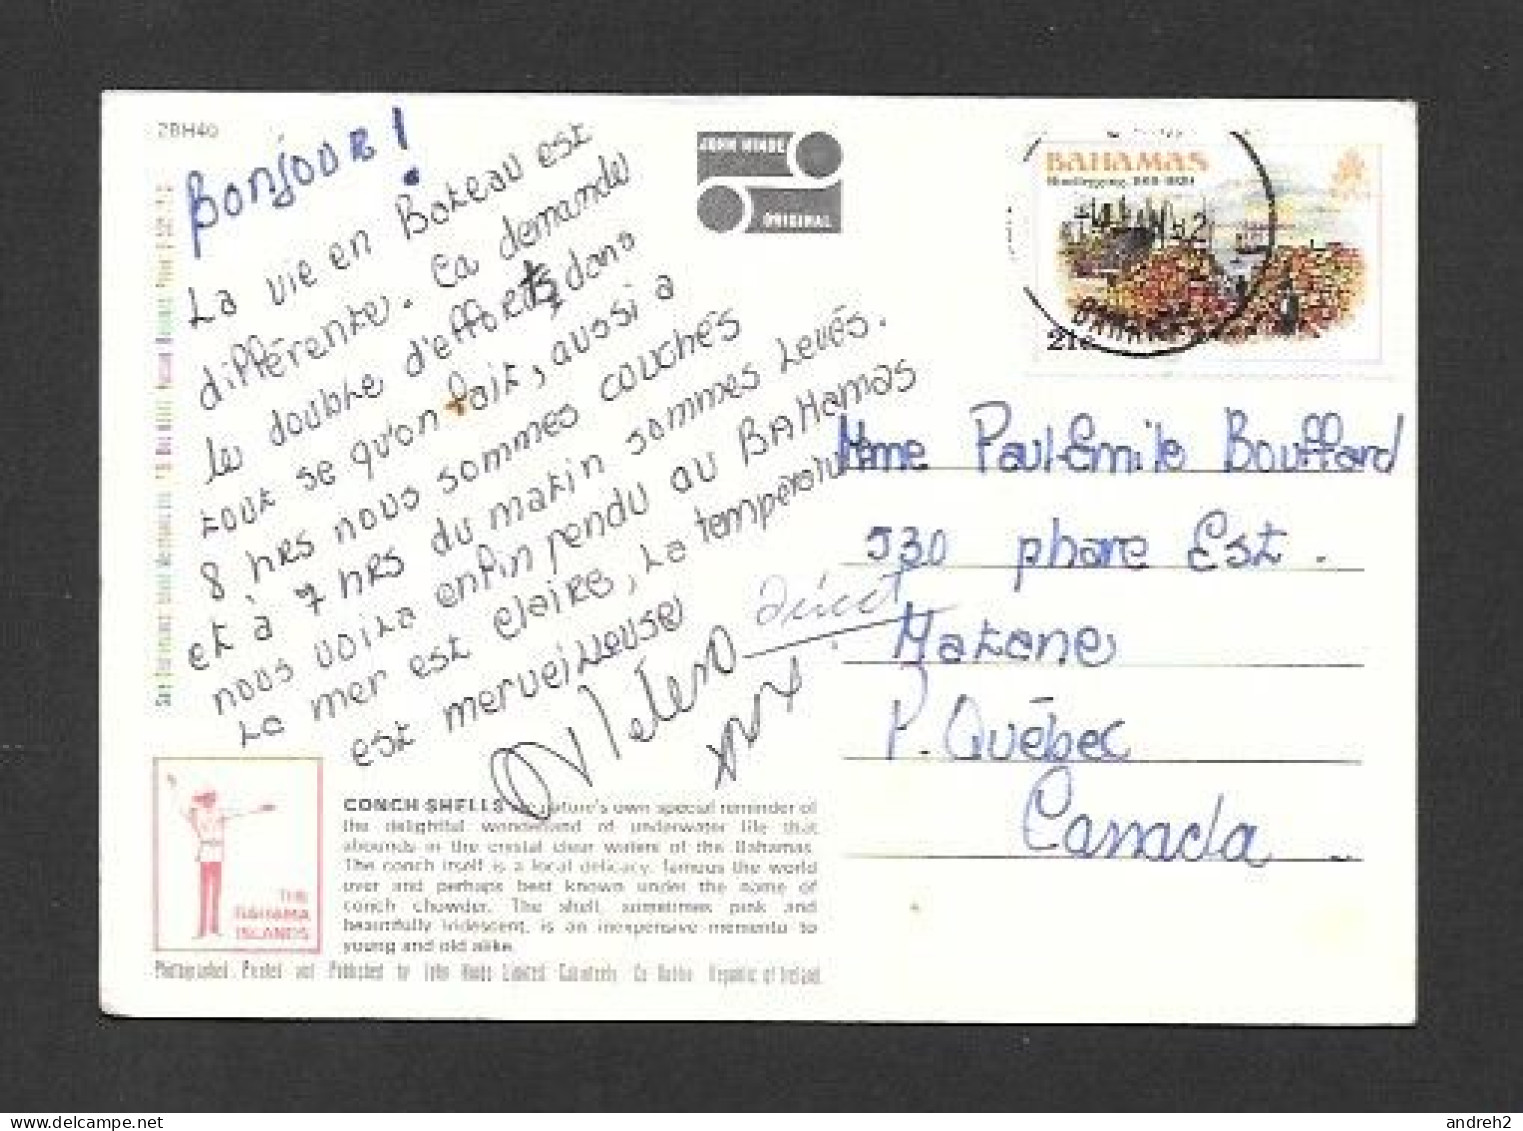 2BH40
Bonjour!
La vie en Bateau est
différente. Ça demande
le double d'efforts dans
tout se qu'on fait, aussi a
8 hrs nous sommes couchés
et a 7 hrs du matin sommes levés.
nous voila enfin rendu au BAHamas
La mer est claire, La temperature
est merveilleuse
JOHN HINDE
ORIGINAL
BAHAMAS
21c
BAHAMAS
Mme Paul-Emile Bouffard
530 phare Est.
Matane
P. Québec
Canada
THE
BAHAMA
ISLANDS
CONCH SHELLS are nature's own special reminder of
the delightful wonderland of underwater life that
abounds in the crystal clear waters of the Bahamas.
The conch itself is a local delicacy, famous the world
over and perhaps best known under the name of
conch chowder. The shell, sometimes pink and
beautifully iridescent, is an inexpensive memento to
young and old alike.
Photographed, Printed and Published by John Hinde Limited, Cabinteely, Co Dublin, Republic of Ireland.
andreh2